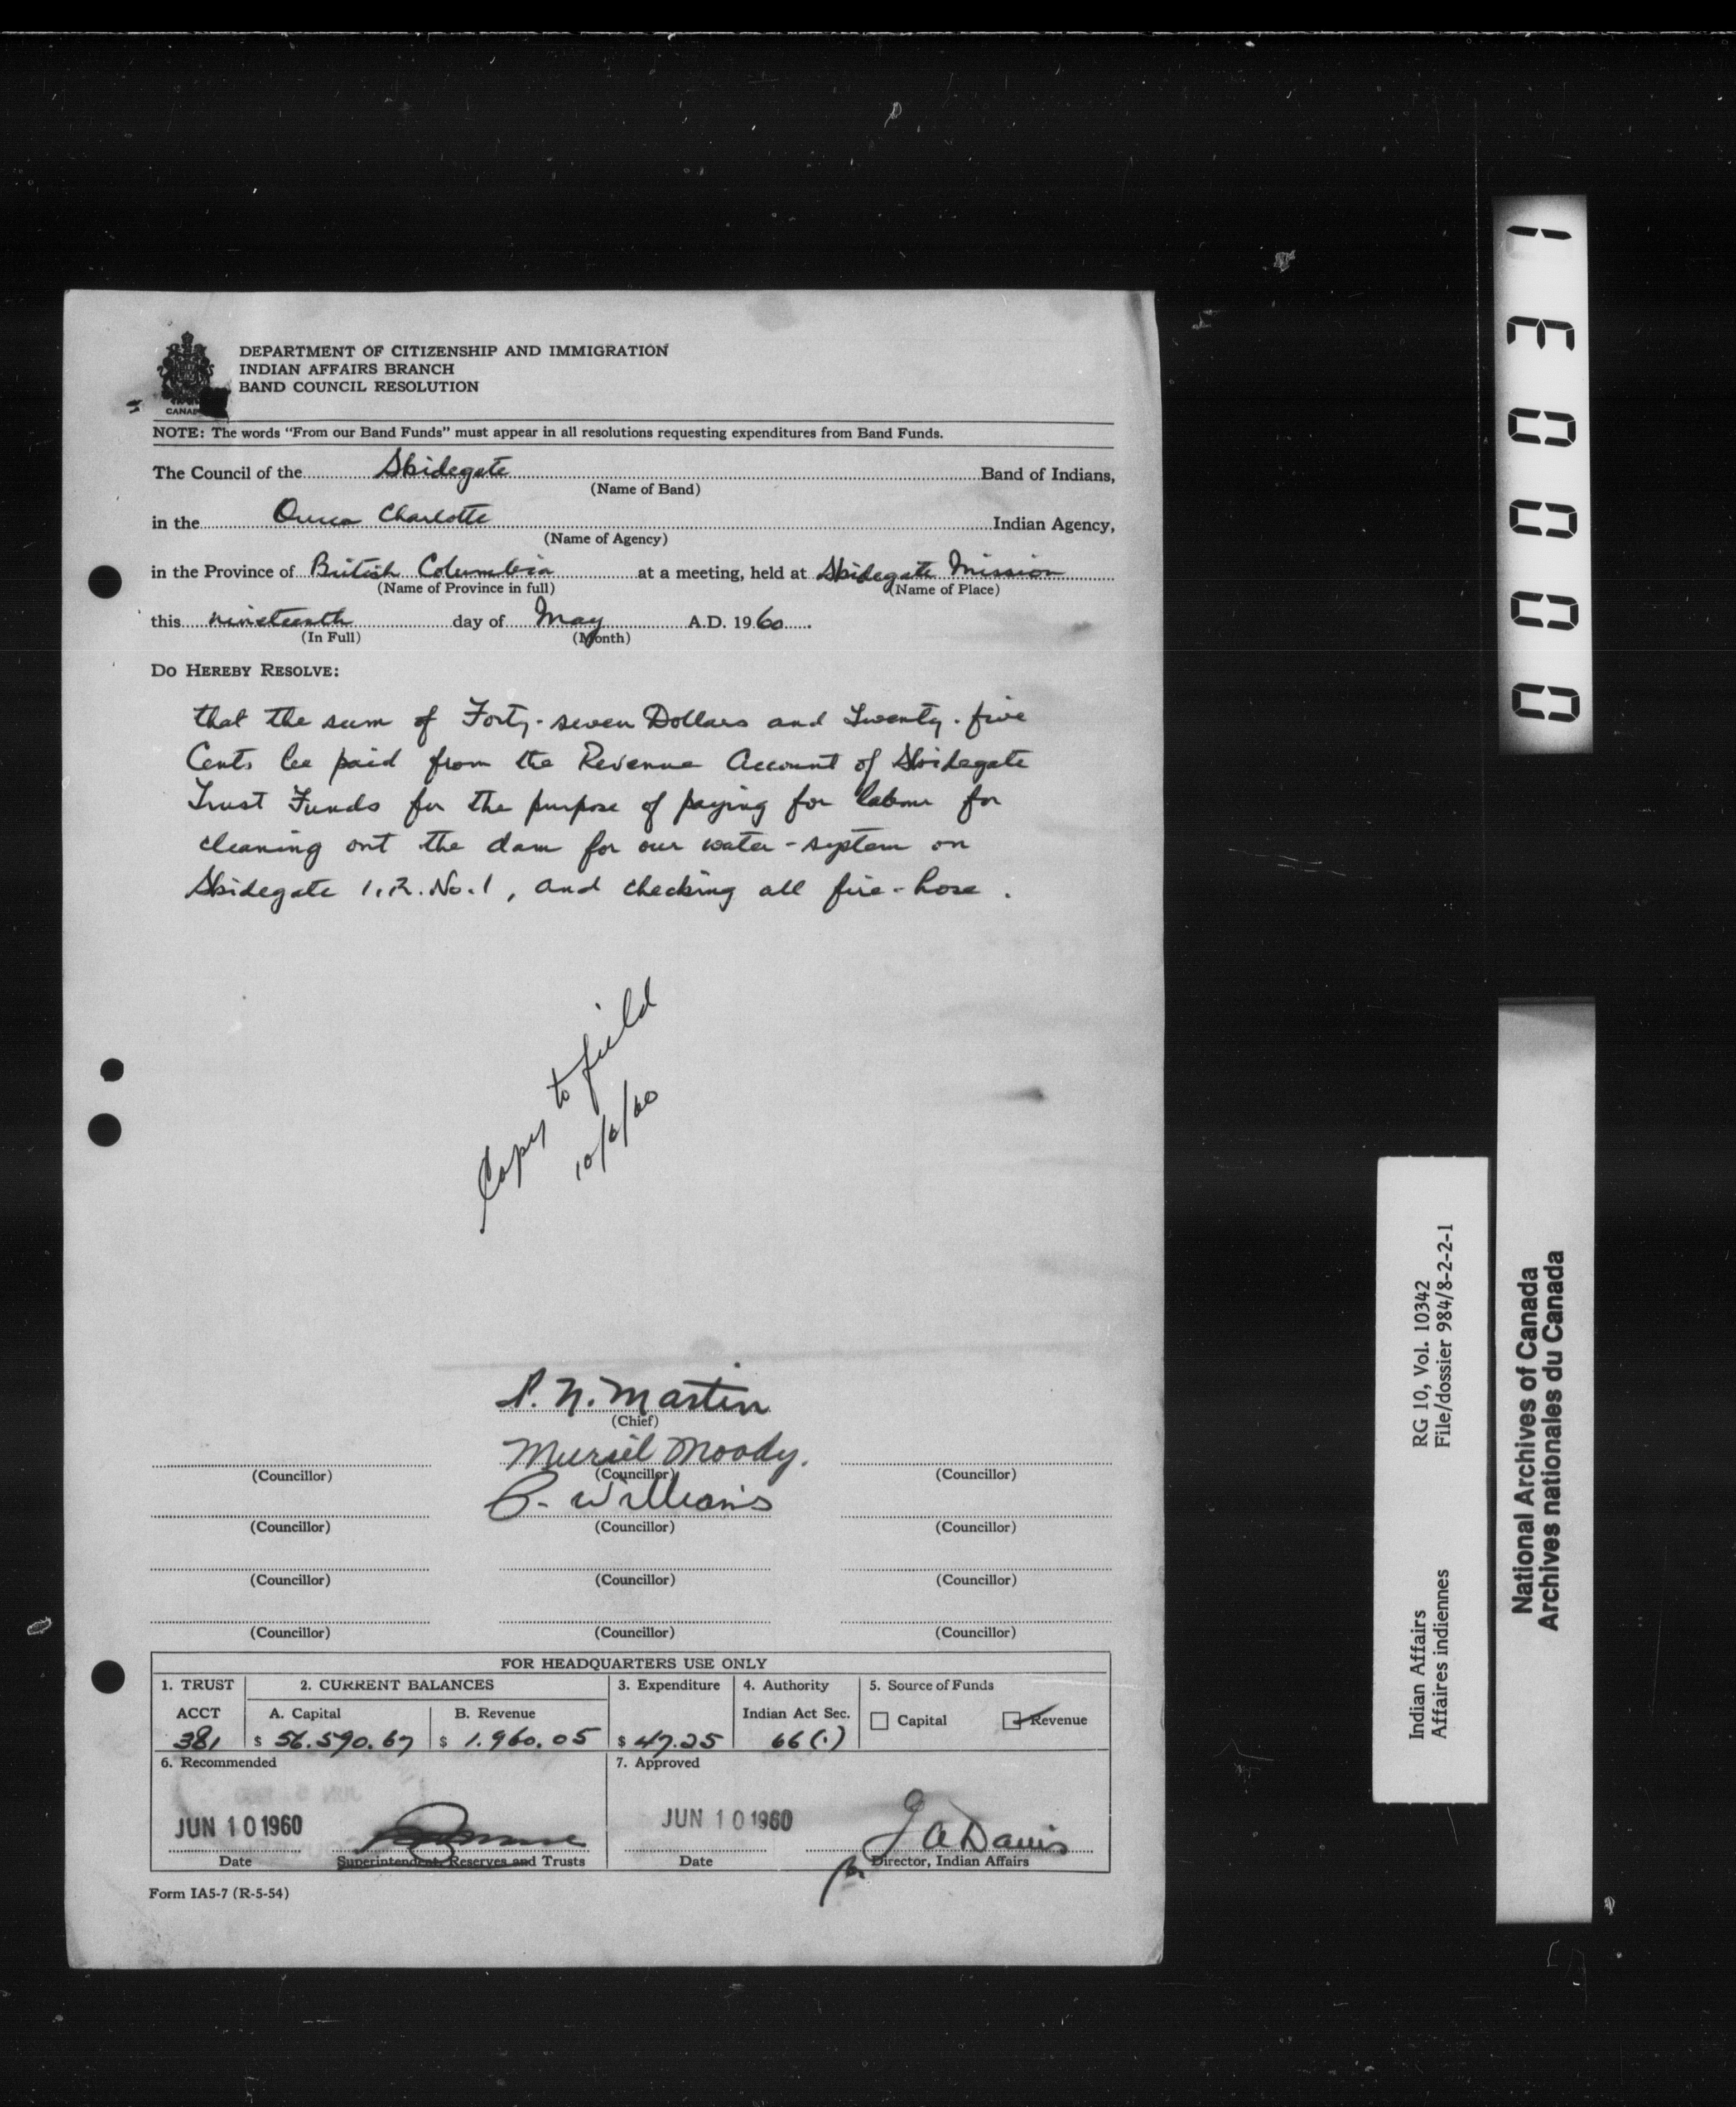 DEPARTMENT OF CITIZENSHIP AND IMMIGRATION
INDIAN AFFAIRS BRANCH
BAND COUNCIL RESOLUTION
NOTE: The words "From our Band Funds" must appear in all resolutions requesting expenditures from Band Funds.
The Council of the Skidegate Band of Indians,
(Name of Band)
in the Queen Charlotte Indian Agency,
(Name of Agency)
in the Province of British Columbia at a meeting, held at Skidegate Mission
(Name of Province in full) (Name of Place)
this nineteenth day of May A.D. 1960.
(In Full) (Month)
DO HEREBY RESOLVE:
that the sum of Forty-seven Dollars and Twenty-five
Cents be paid from the Revenue Account of Skidegate
Trust Funds for the purpose of paying for labour for
cleaning out the dam for our water-system on
Skidegate I.R. No. 1, and checking all fire-hose.
Copy to field
10/6/60
P. N. Martin
(Chief)
Muriel Moody.
(Councillor) (Councillor) (Councillor)
B. Williams
(Councillor) (Councillor) (Councillor)
(Councillor) (Councillor) (Councillor)
(Councillor) (Councillor) (Councillor)
FOR HEADQUARTERS USE ONLY
1. TRUST 2. CURRENT BALANCES 3. Expenditure 4. Authority 5. Source of Funds
ACCT A. Capital B. Revenue Indian Act Sec. Capital Revenue
381 $ 56.590.67 $ 1.960.05 $ 47.25 66(1)
6. Recommended 7. Approved
JUN 10 1960 JUN 10 1960 J A Davis
Date Superintendent, Reserves and Trusts Date for Director, Indian Affairs
Form IA5-7 (R-5-54)
000031
Indian Affairs RG 10, Vol. 10342
Affaires indiennes File/dossier 984/8-2-2-1
National Archives of Canada
Archives nationales du Canada